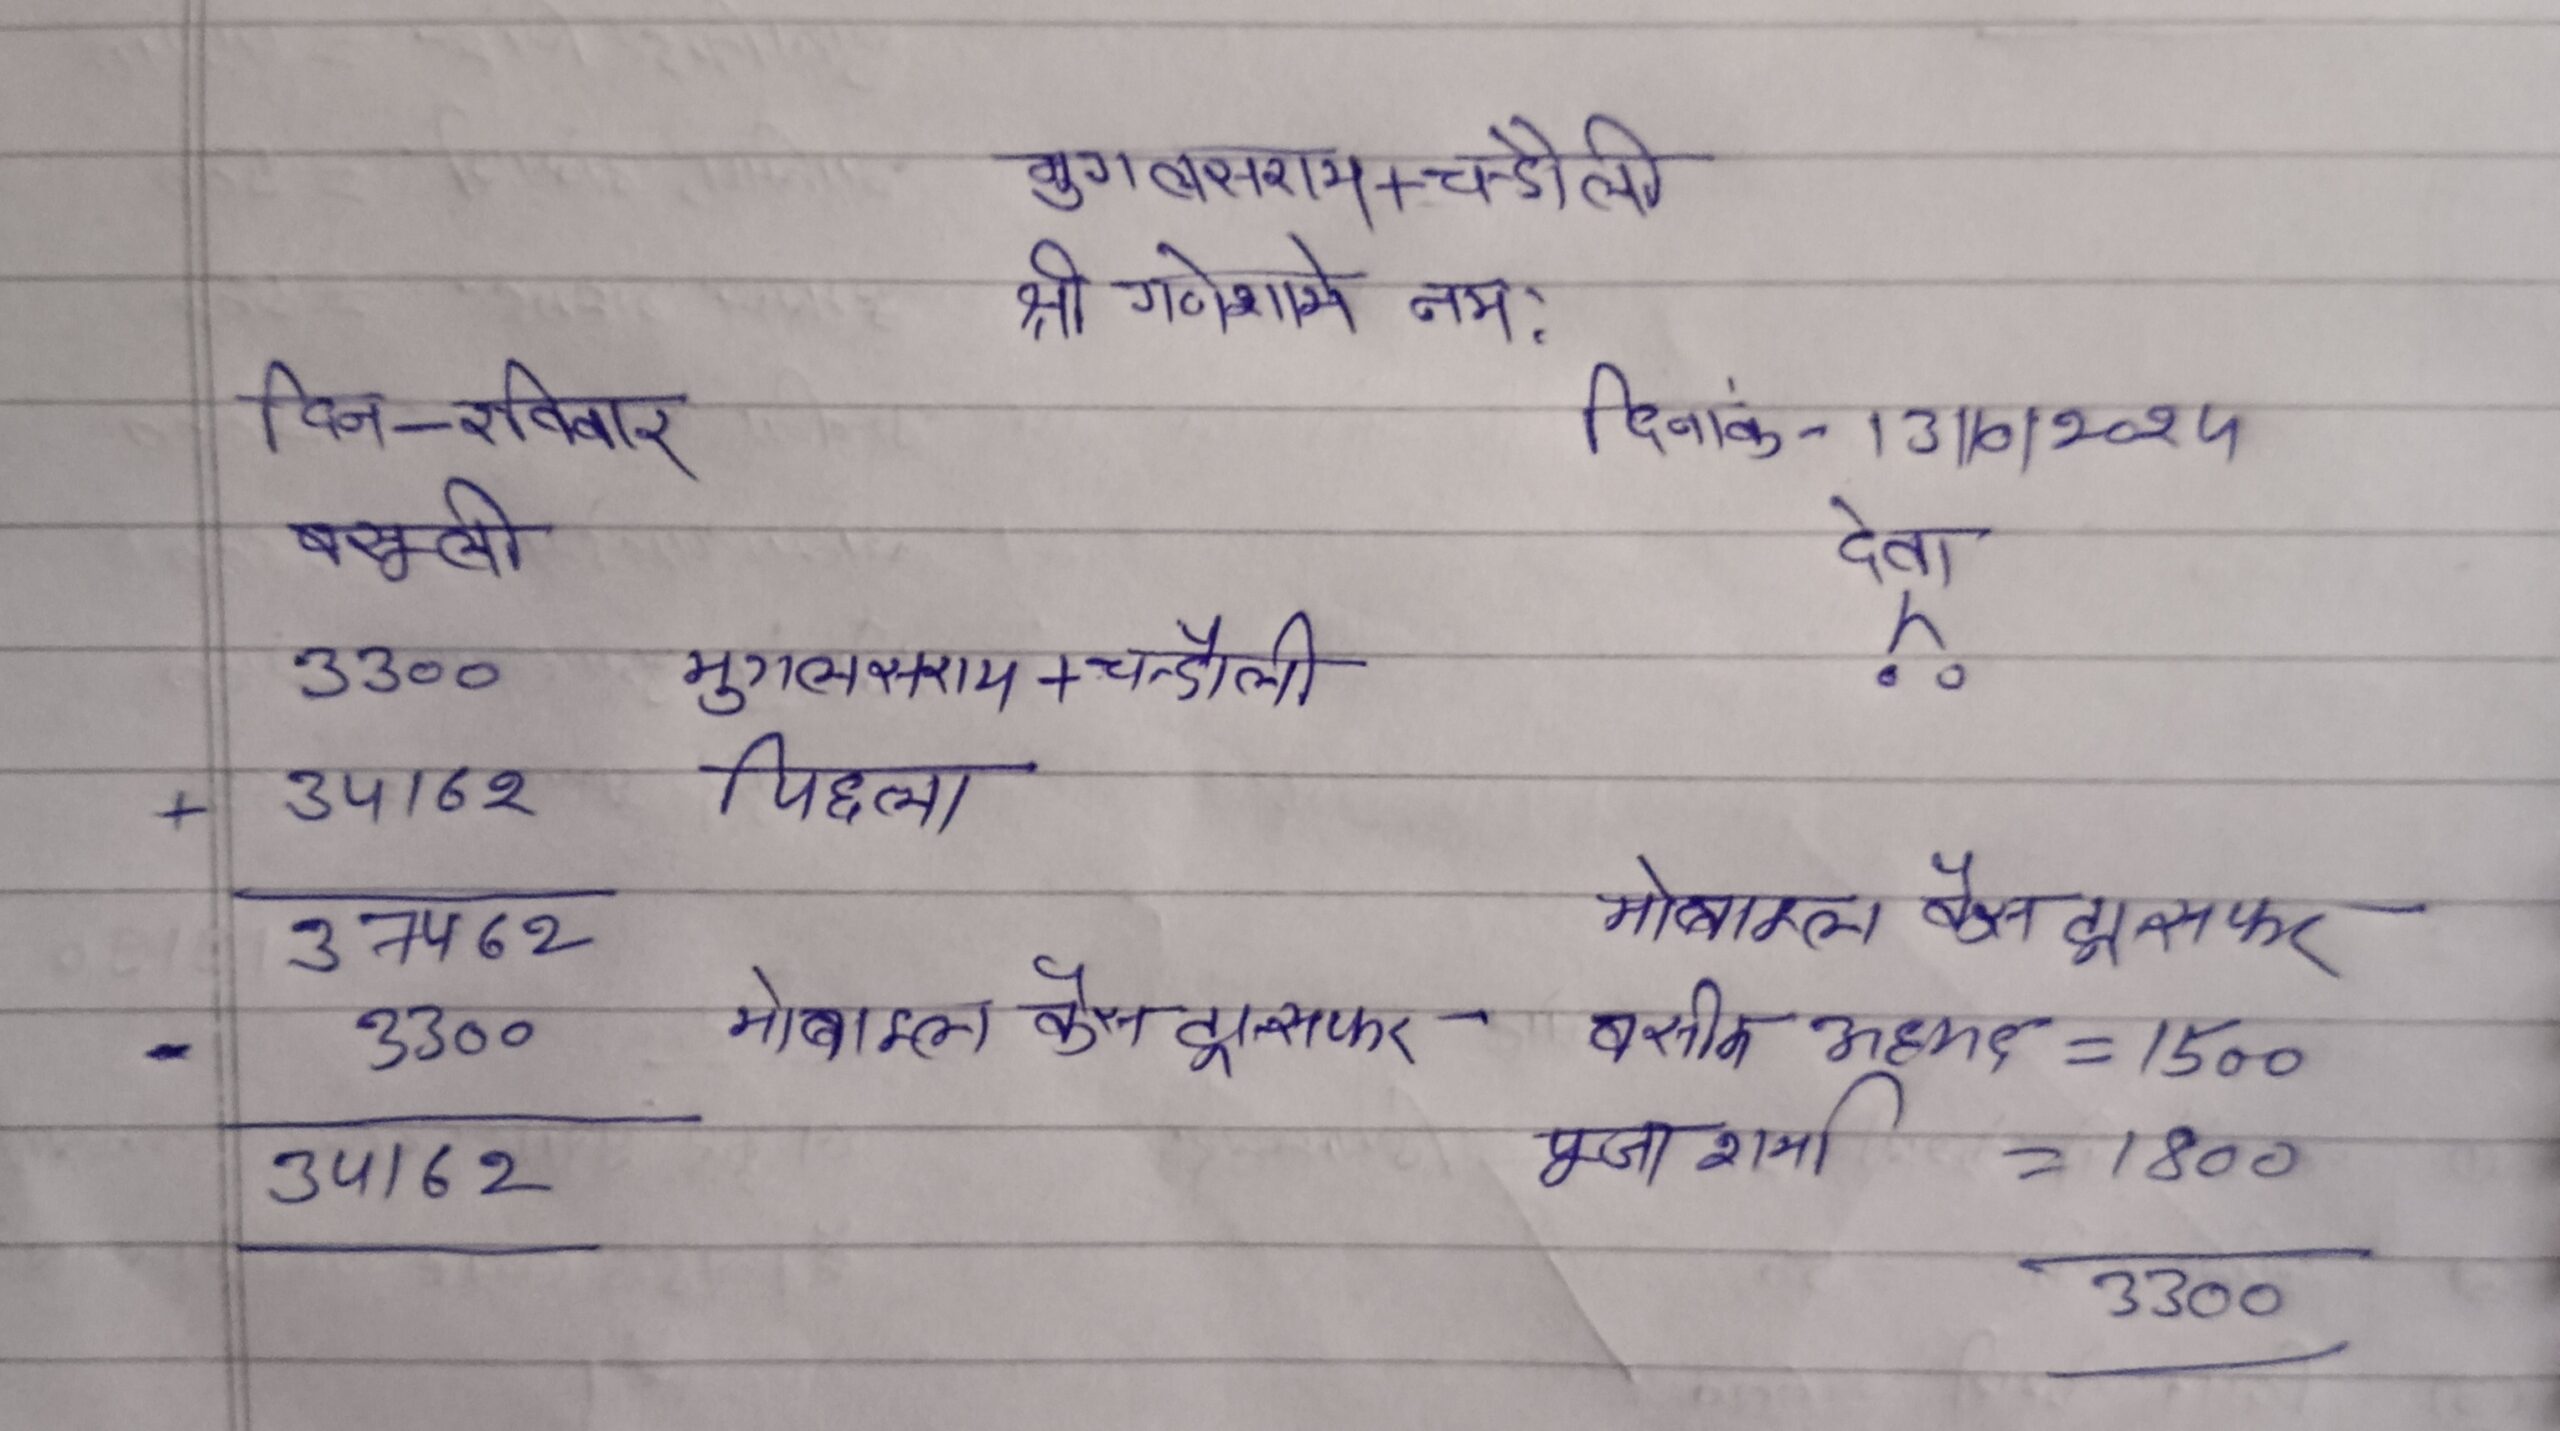 मुगलसराय+चन्डौली
श्री गणेशाये नमः
दिन-रविवार दिनांक- 13/10/2024
बसूली देना
3300 मुगलसराय+चन्डौली
+ 34162 पिछला
37462 मोबाइल कैस ट्रान्सफर-
- 3300 मोबाइल कैस ट्रान्सफर- बसीम अहमद = 1500
34162 पूजा शर्मा = 1800
3300